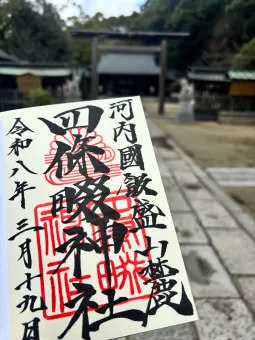 河内國飯盛山麓
四條畷神社
令和八年三月十九日